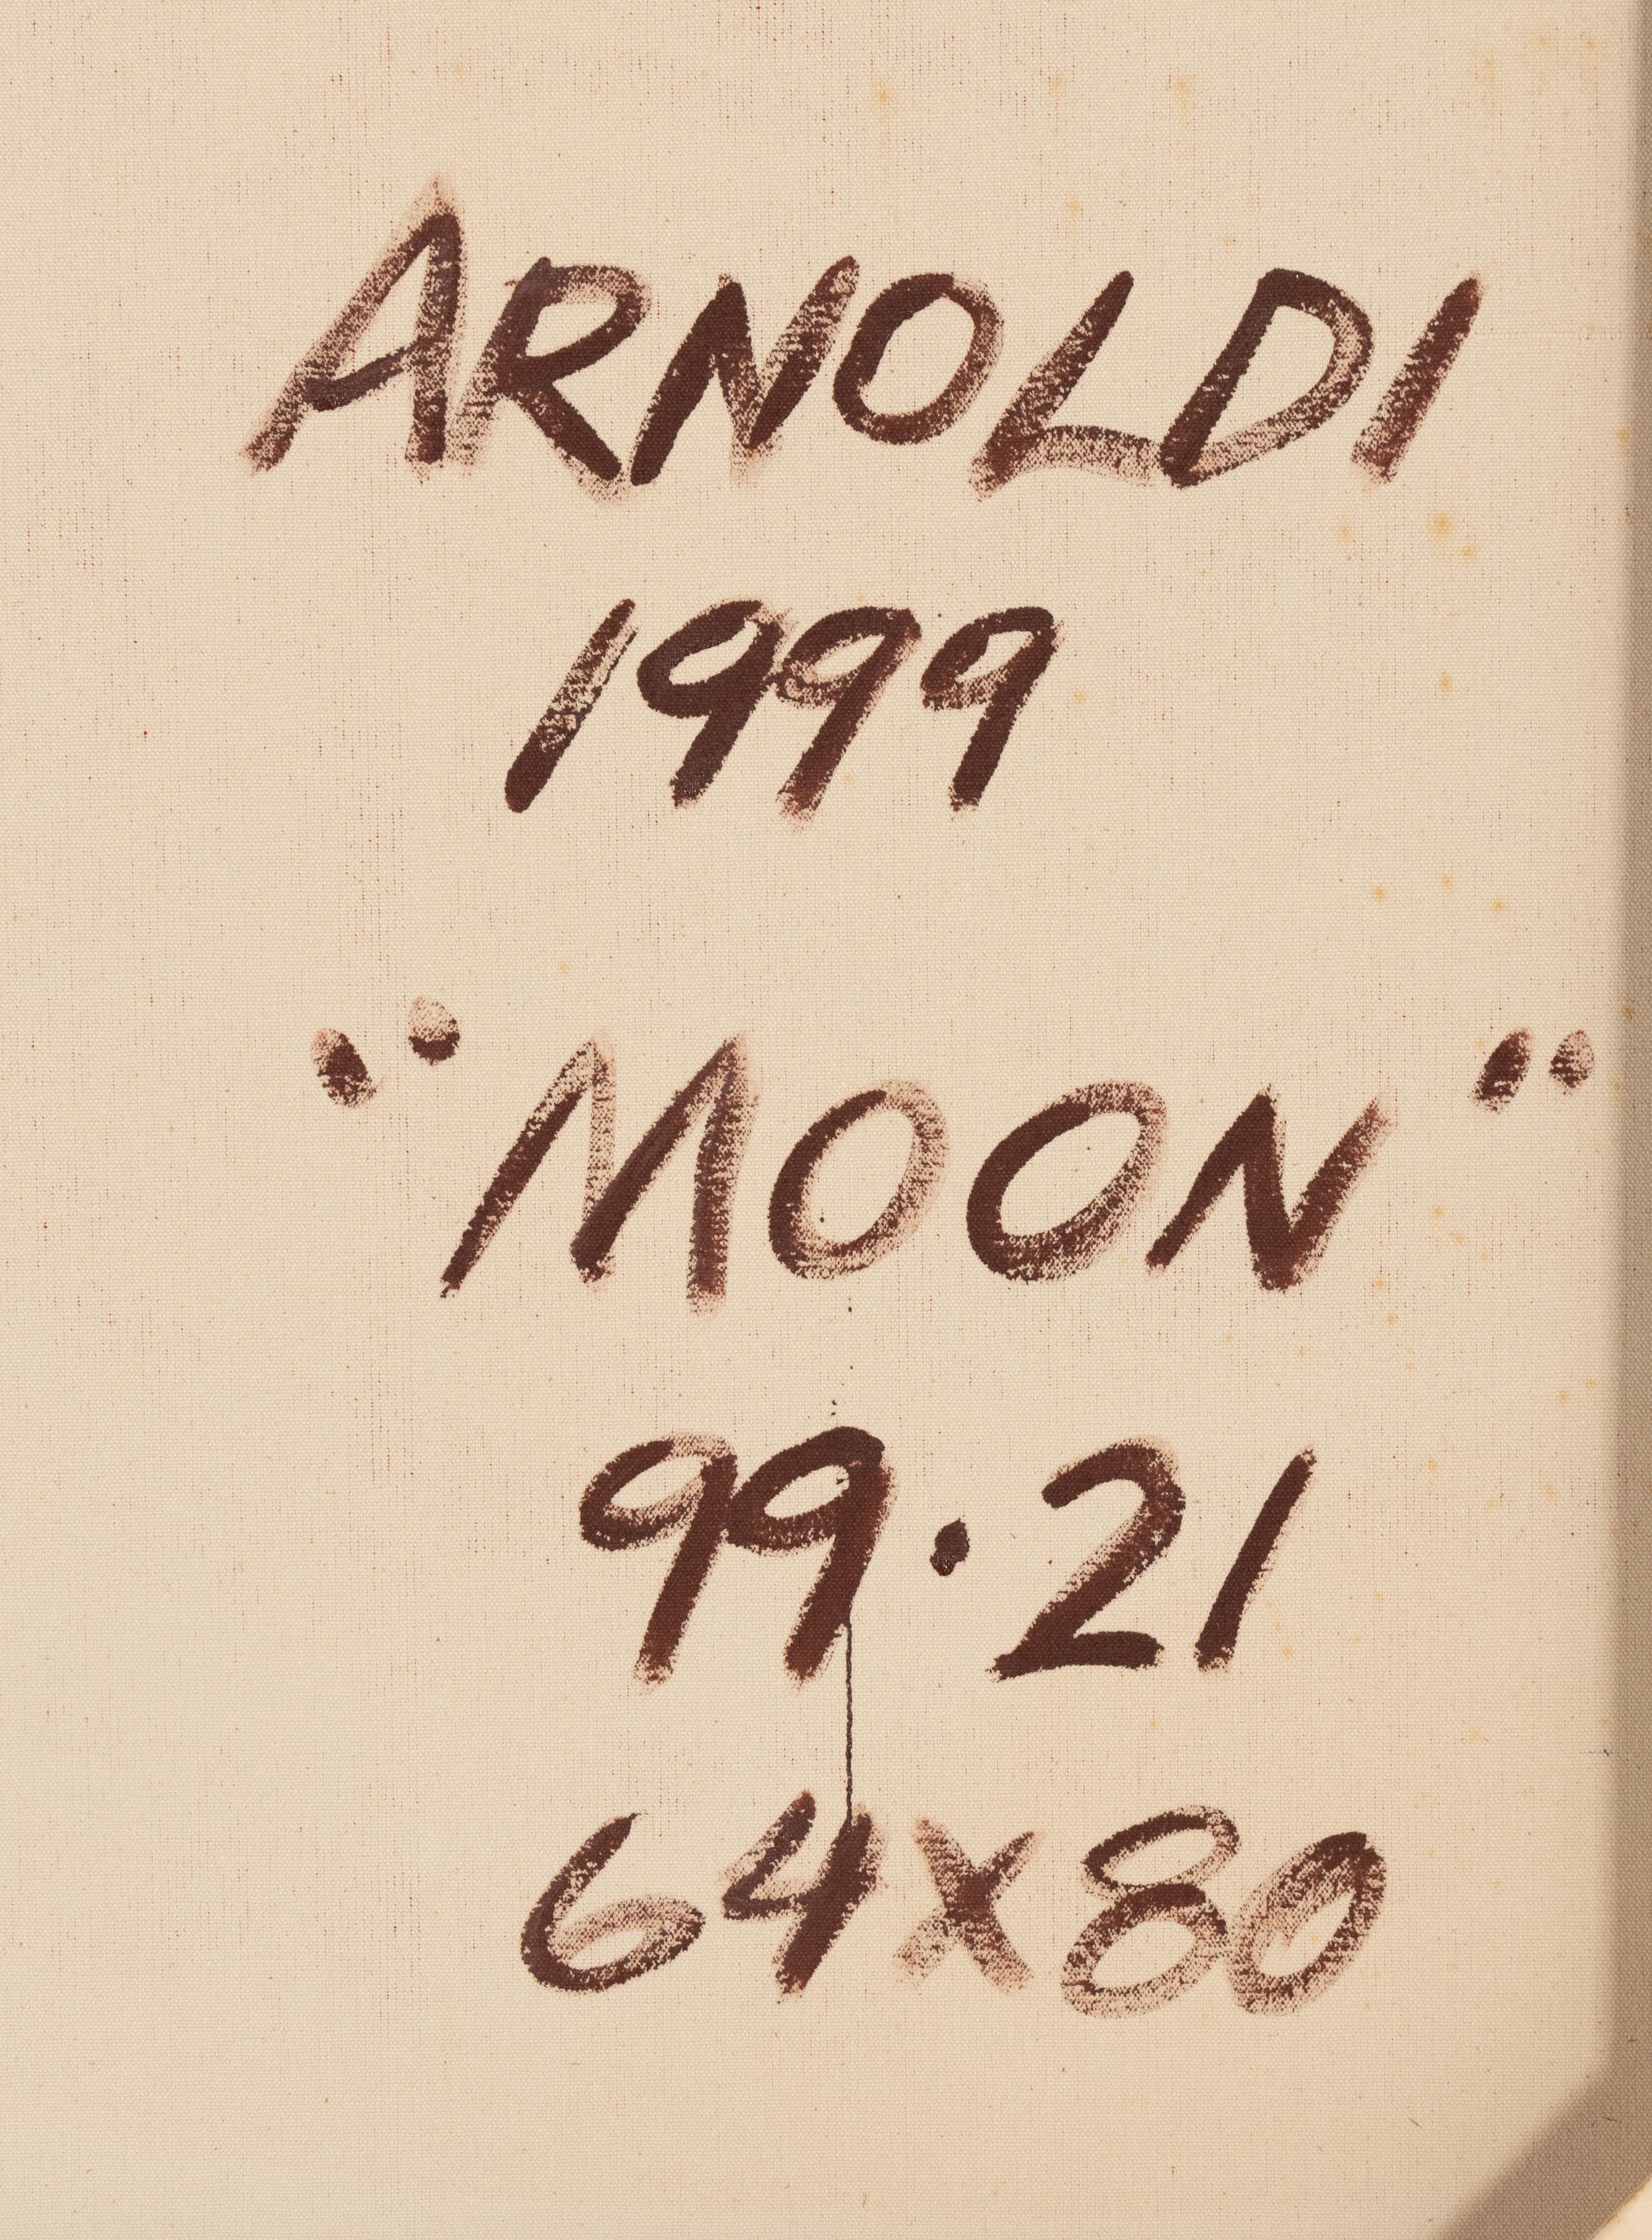 ARNOLDI
1999
"MOON"
99·21
64X80